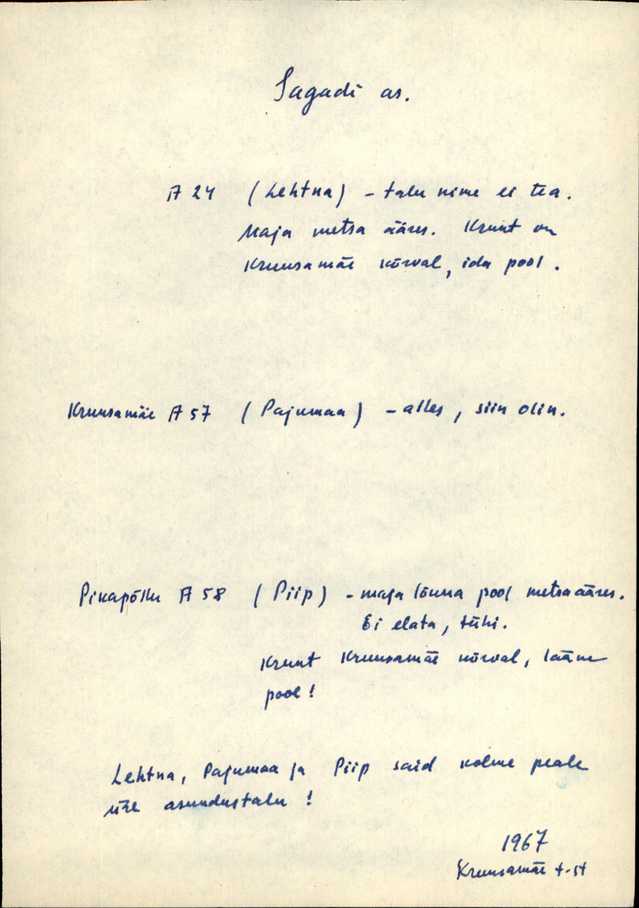 Sagadi as.
A 24 (Lehtna) – talu nime ei tea.
Maja metsa ääres. Krunt on
Kruusamäe kõrval, ida pool.
Kruusamäe A 57 (Pajumaa) – alles, siin olin.
Pikapõllu A 58 (Piip) – maja lõuna pool metsaääres.
Ei elata, tühi.
Krunt Kruusamäe kõrval, lääne
pool!
Lehtna, Pajumaa ja Piip said kolme peale
ühe asundustalu!
1967
Kruusamäe t-st